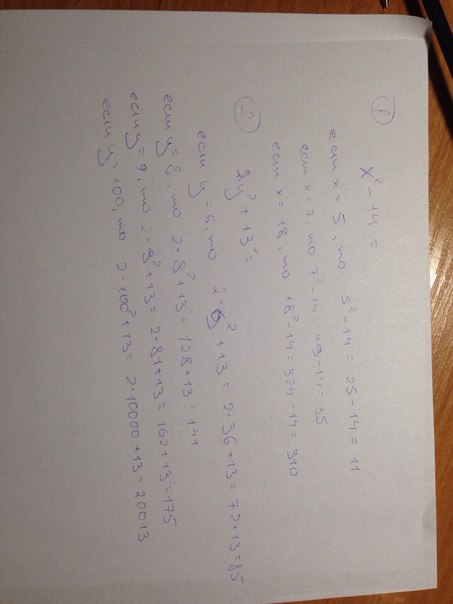 ①
x² - 14 =
если x = 5, то 5² - 14 = 25 - 14 = 11
если x = 7, то 7² - 14 = 49 - 14 = 35
если x = 18, то 18² - 14 = 324 - 14 = 310
② 2y² + 13 =
если y = 6, то 2·6² + 13 = 2·36 + 13 = 72 + 13 = 85
если y = 8, то 2·8² + 13 = 128 + 13 = 141
если y = 9, то 2·9² + 13 = 2·81 + 13 = 162 + 13 = 175
если y = 100, то 2·100² + 13 = 2·10000 + 13 = 20013